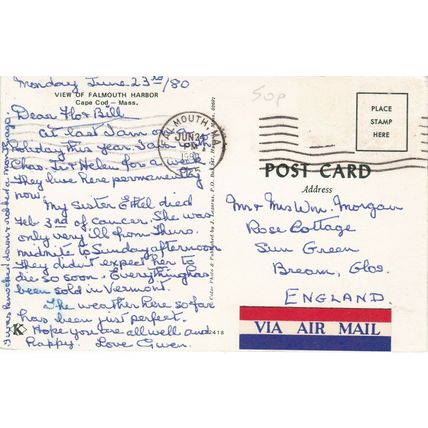 Monday June 23rd/80
VIEW OF FALMOUTH HARBOR
Cape Cod – Mass.
Dear Flo & Bill
At last I am on a
holiday this year. I am with
Chas Jr & Helen for a week
They live here permanently
now.
My sister Ethel died
Feb 3rd of cancer. She was
only very ill from Thurs.
midnite to Sunday afternoon
They didn't expect her to
die so soon. Everything has
been sold in Vermont.
The weather here so far
has been just perfect.
Hope you are all well and
happy. Love Gwen.
I was knocked down & robbed a month ago
K
2418
Color Photo
FALMOUTH, MA
JUN 24
PM
1980
50p
PLACE
STAMP
HERE
POST CARD
Address
Mr & Mrs Wm. Morgan
Rose Cottage
Sun Green
Bream, Glos.
ENGLAND.
VIA AIR MAIL